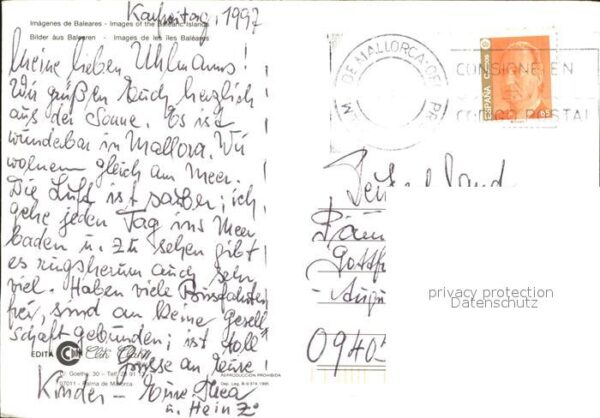 Karfreitag, 1997
Imágenes de Baleares - Images of the Balearic Islands
Bilder aus Balearen - Images de les Iles Baléares
Meine lieben Uhlmanns!
Wir grüßen Euch herzlich
aus der Sonne. Es ist
wunderbar in Mallorca. Wir
wohnen gleich am Meer.
Die Luft ist sauber; ich
gehe jeden Tag ins Meer
baden u. zu sehen gibt
es ringsherum auch sehr
viel. Haben viele Busfahrten
frei, sind an keine Gesell
schaft gebunden; ist toll
EDITA
Grüsse an Eure
C/. Goethe, 30 - Telf. 28 91
07011 - Palma de Mallorca
REPRODUCCIÓN PROHIBIDA
Dep. Leg. B-
1995
Kinder - Eure Thea
u. Heinz
DE MALLORCA
CONSIGNE EN
CODIGO POSTAL
ESPAÑA
Correos
Deutschland
Gottf
Augu
privacy protection
Datenschutz
0940